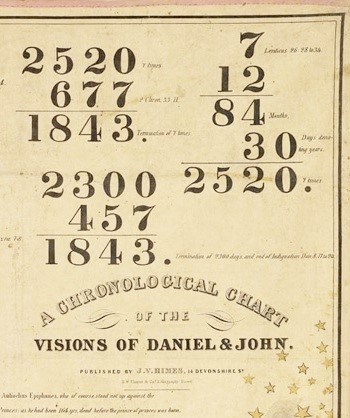 2520 7 times
677
1843. Termination of 7 times
7 Leviticus 26
12
84 Months.
30 Days
2520. 7 times
2300
457
1843. Termination of 2300 days, and end of Indignation Dan 8.
A CHRONOLOGICAL CHART
OF THE
VISIONS OF DANIEL & JOHN.
PUBLISHED BY J.V. HIMES, 14 DEVONSHIRE St
Antiochus Epiphanes, who of course stood not up against the
Princes: as he had been 164 yrs. dead before the prince of princes was born.